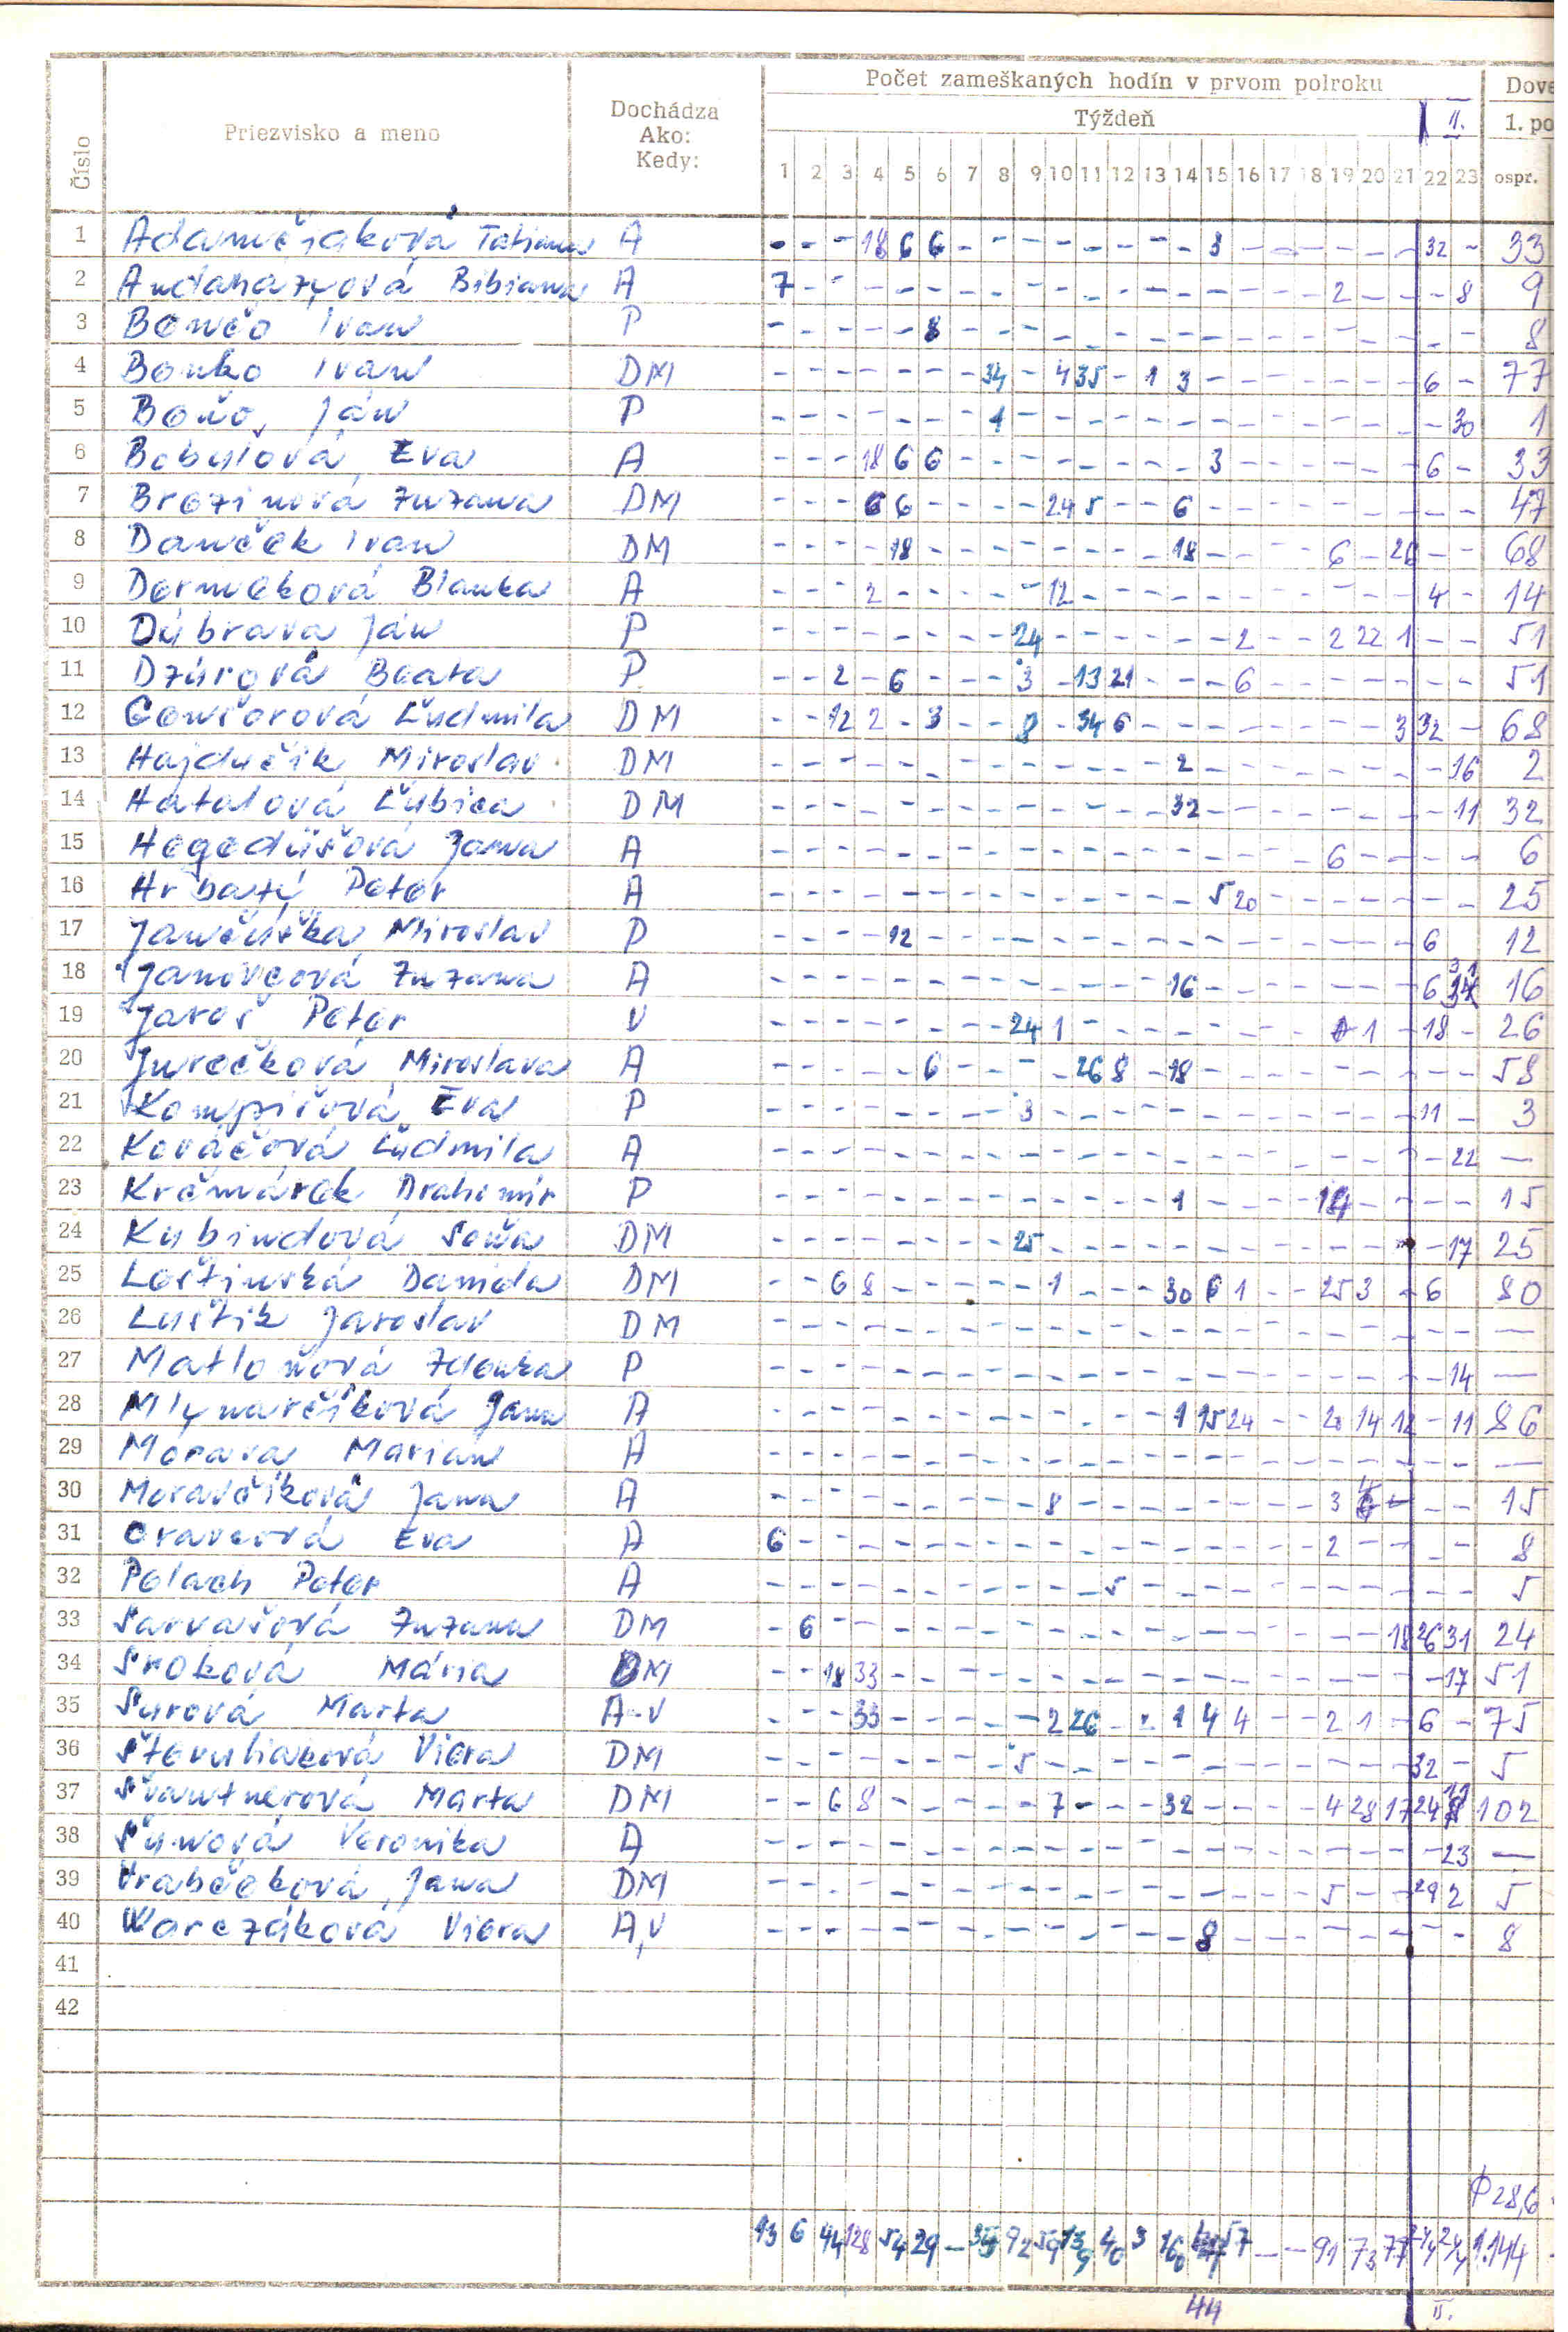 Počet zameškaných hodín v prvom polroku Dove
Číslo Priezvisko a meno Dochádza Ako: Kedy: Týždeň II. 1. po
1 2 3 4 5 6 7 8 9 10 11 12 13 14 15 16 17 18 19 20 21 22 23 ospr.
1 Adamčiaková Tatiana A - - - 18 6 6 - - - - - - - - 3 - - - - - - 32 - 33
2 Andaházyová Bibiana A 7 - - - - - - - - - - - - - - - - - 2 - - - 8 9
3 Bončo Ivan P - - - - - 8 - - - - - - - - - - - - - - - - - 8
4 Bonko Ivan DM - - - - - - - 34 - 4 35 - 1 3 - - - - - - - 6 - 77
5 Boňo Ján P - - - - - - - 1 - - - - - - - - - - - - - - 30 1
6 Bobulová Eva A - - - 18 6 6 - - - - - - - - 3 - - - - - - 6 - 33
7 Brezinová Zuzana DM - - - 6 6 - - - - 24 5 - - 6 - - - - - - - - - 47
8 Danček Ivan DM - - - - 18 - - - - - - - - 18 - - - - 6 - 26 - - 68
9 Blanka A - - - 2 - - - - - 12 - - - - - - - - - - - 4 - 14
10 Dúbrava Ján P - - - - - - - - 24 - - - - - - 2 - - 2 22 1 - - 51
11 Dzúrová Beata P - - 2 - 6 - - - 3 - 13 21 - - - 6 - - - - - - - 51
12 Gonšorová Ľudmila DM - - 12 2 - 3 - - 8 - 34 6 - - - - - - - - 3 32 - 68
13 Hajdučík Miroslav DM - - - - - - - - - - - - - 2 - - - - - - - - 16 2
14 Hatalová Ľubica DM - - - - - - - - - - - - - 32 - - - - - - - - 11 32
15 Hegedüšová Jana A - - - - - - - - - - - - - - - - - - 6 - - - - 6
16 Hrbatý Peter A - - - - - - - - - - - - - - 5 20 - - - - - - - 25
17 Jančuška Miroslav P - - - - 12 - - - - - - - - - - - - - - - - 6 12
18 Janovcová Zuzana A - - - - - - - - - - - - - 16 - - - - - - - 6 16
19 Jaroš Peter V - - - - - - - - 24 1 - - - - - - - - 1 - 18 - 26
20 Jurečková Miroslava A - - - - - 6 - - - - 26 8 - 18 - - - - - - - - - 58
21 Kompišová Eva P - - - - - - - - 3 - - - - - - - - - - - - 11 - 3
22 Kováčová Ľudmila A - - - - - - - - - - - - - - - - - - - - - - 22 —
23 Krčmárek Drahomír P - - - - - - - - - - - - - 1 - - - - 14 - - - - 15
24 Kubindová Soňa DM - - - - - - - - 25 - - - - - - - - - - - - - 17 25
25 Leštinská Daniela DM - - 6 8 - - - - - 1 - - - 30 6 1 - - 25 3 - 6 80
26 Luštík Jaroslav DM - - - - - - - - - - - - - - - - - - - - - - - —
27 Matloňová Zdenka P - - - - - - - - - - - - - - - - - - - - - - 14 —
28 Mlynarčíková Jana A - - - - - - - - - - - - - 1 15 24 - - 20 14 12 - 11 86
29 Morava Marian A - - - - - - - - - - - - - - - - - - - - - - - —
30 Moravčíková Jana A - - - - - - - - - 8 - - - - - - - - 3 - - - 15
31 Oravcová Eva A 6 - - - - - - - - - - - - - - - - - 2 - - - - 8
32 Polach Peter A - - - - - - - - - - - 5 - - - - - - - - - - - 5
33 Sarvašová Zuzana DM - 6 - - - - - - - - - - - - - - - - - - 18 26 31 24
34 Sroková Mária DM - - 18 33 - - - - - - - - - - - - - - - - - - 17 51
35 Surová Marta A-V - - - 33 - - - - - 2 26 - - 1 4 4 - - 2 1 - 6 - 75
36 Števuliaková Viera DM - - - - - - - - 5 - - - - - - - - - - - - 32 - 5
37 Švantnerová Marta DM - - 6 8 - - - - - 7 - - - 32 - - - - 4 28 17 24 102
38 Šunová Veronika A - - - - - - - - - - - - - - - - - - - - - - 23 —
39 Vrabčeková Jana DM - - - - - - - - - - - - - - - - - - 5 - - 29 2 5
40 Warezáková Viera A,V - - - - - - - - - - - - - - 8 - - - - - - - - 8
41
42
ϕ 28,6
13 6 44 128 54 29 - 35 92 59 139 40 3 160 57 - - 91 73 77 1.144
44 II.